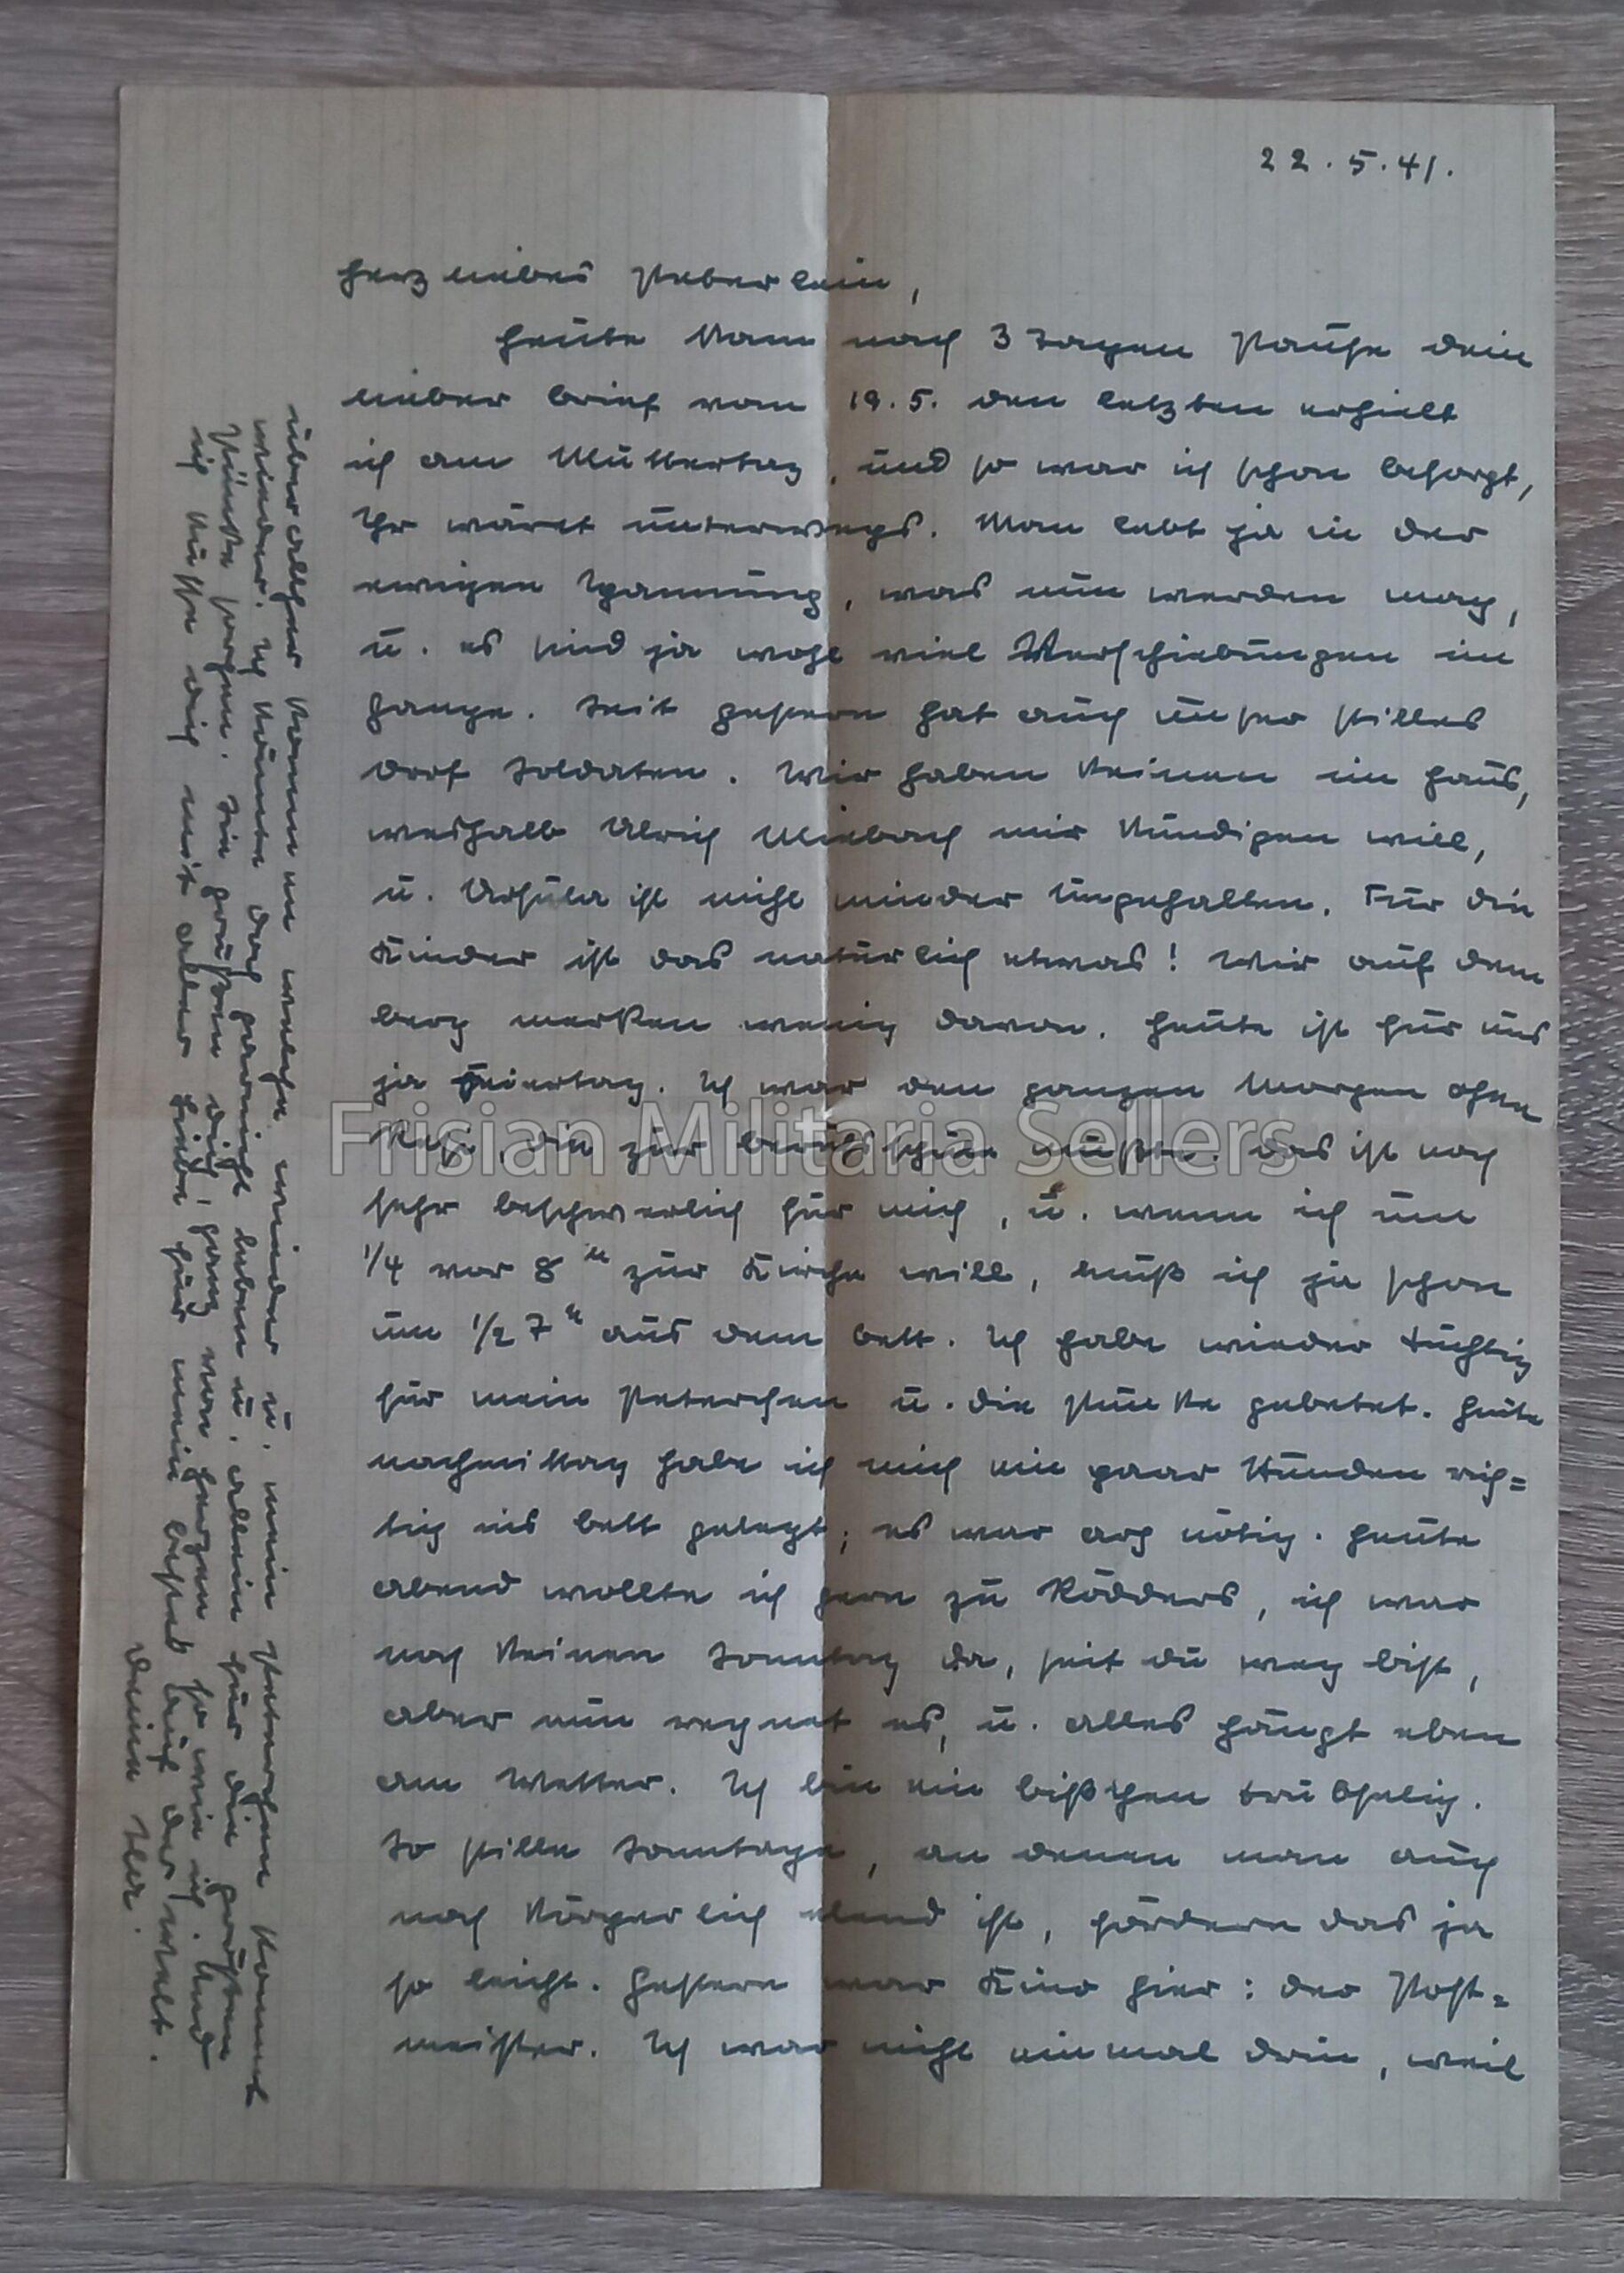 22.5.41.
Herzliebes Peterlein,
Heute kam nach 3 Tagen Pause dein
lieber Brief vom 19.5. Den letzten erhielt
ich am Muttertag, und so war ich schon besorgt,
Ihr wäret unterwegs. Man lebt ja in der
ewigen Spannung, was nun werden mag,
u. es sind ja wohl viel Verschiebungen im
Gange. Seit gestern hat auch unser stilles
Dorf Soldaten. Wir haben keinen im Haus,
weshalb Ulrich mir kündigen will,
u. Ursula ist nicht minder ungehalten. Für die
Kinder ist das natürlich etwas! Wir auf dem
Berg merken wenig davon. Heute ist für uns
ja Feiertag. Ich war den ganzen Morgen ohne
Resi, die zur Berufsschule mußte. Das ist noch
sehr beschwerlich für mich, u. wenn ich um
1/4 vor 8 u zur Kirche will, muß ich ja schon
um 1/2 7 u aus dem Bett. Ich habe wieder tüchtig
für mein Peterchen u. die gebetet. Heute
nachmittag habe ich mich ein paar Stunden rich=
tig ins Bett gelegt; es war arg nötig. Heute
abend wollte ich gern zu Rödders, ich war
noch keinen Sonntag da, seit du weg bist,
aber nun regnet es, u. alles hängt eben
am Wetter. Ich bin ein bißchen trübselig.
So stille Sonntage, an denen man auch
noch körperlich elend ist, fördern das ja
so leicht. Gestern war Kino hier: der Post=
meister. Ich war nicht einmal drin, weil
wieder u. mein Peterchen kommt
wieder. Ich könnte doch garnicht leben u. allein für die
sorgen. Sie grüßen dich ganz von Herzen so wie ich. Und
ich küsse dich mit aller Liebe für mein Bestes auf der Welt.
Deine